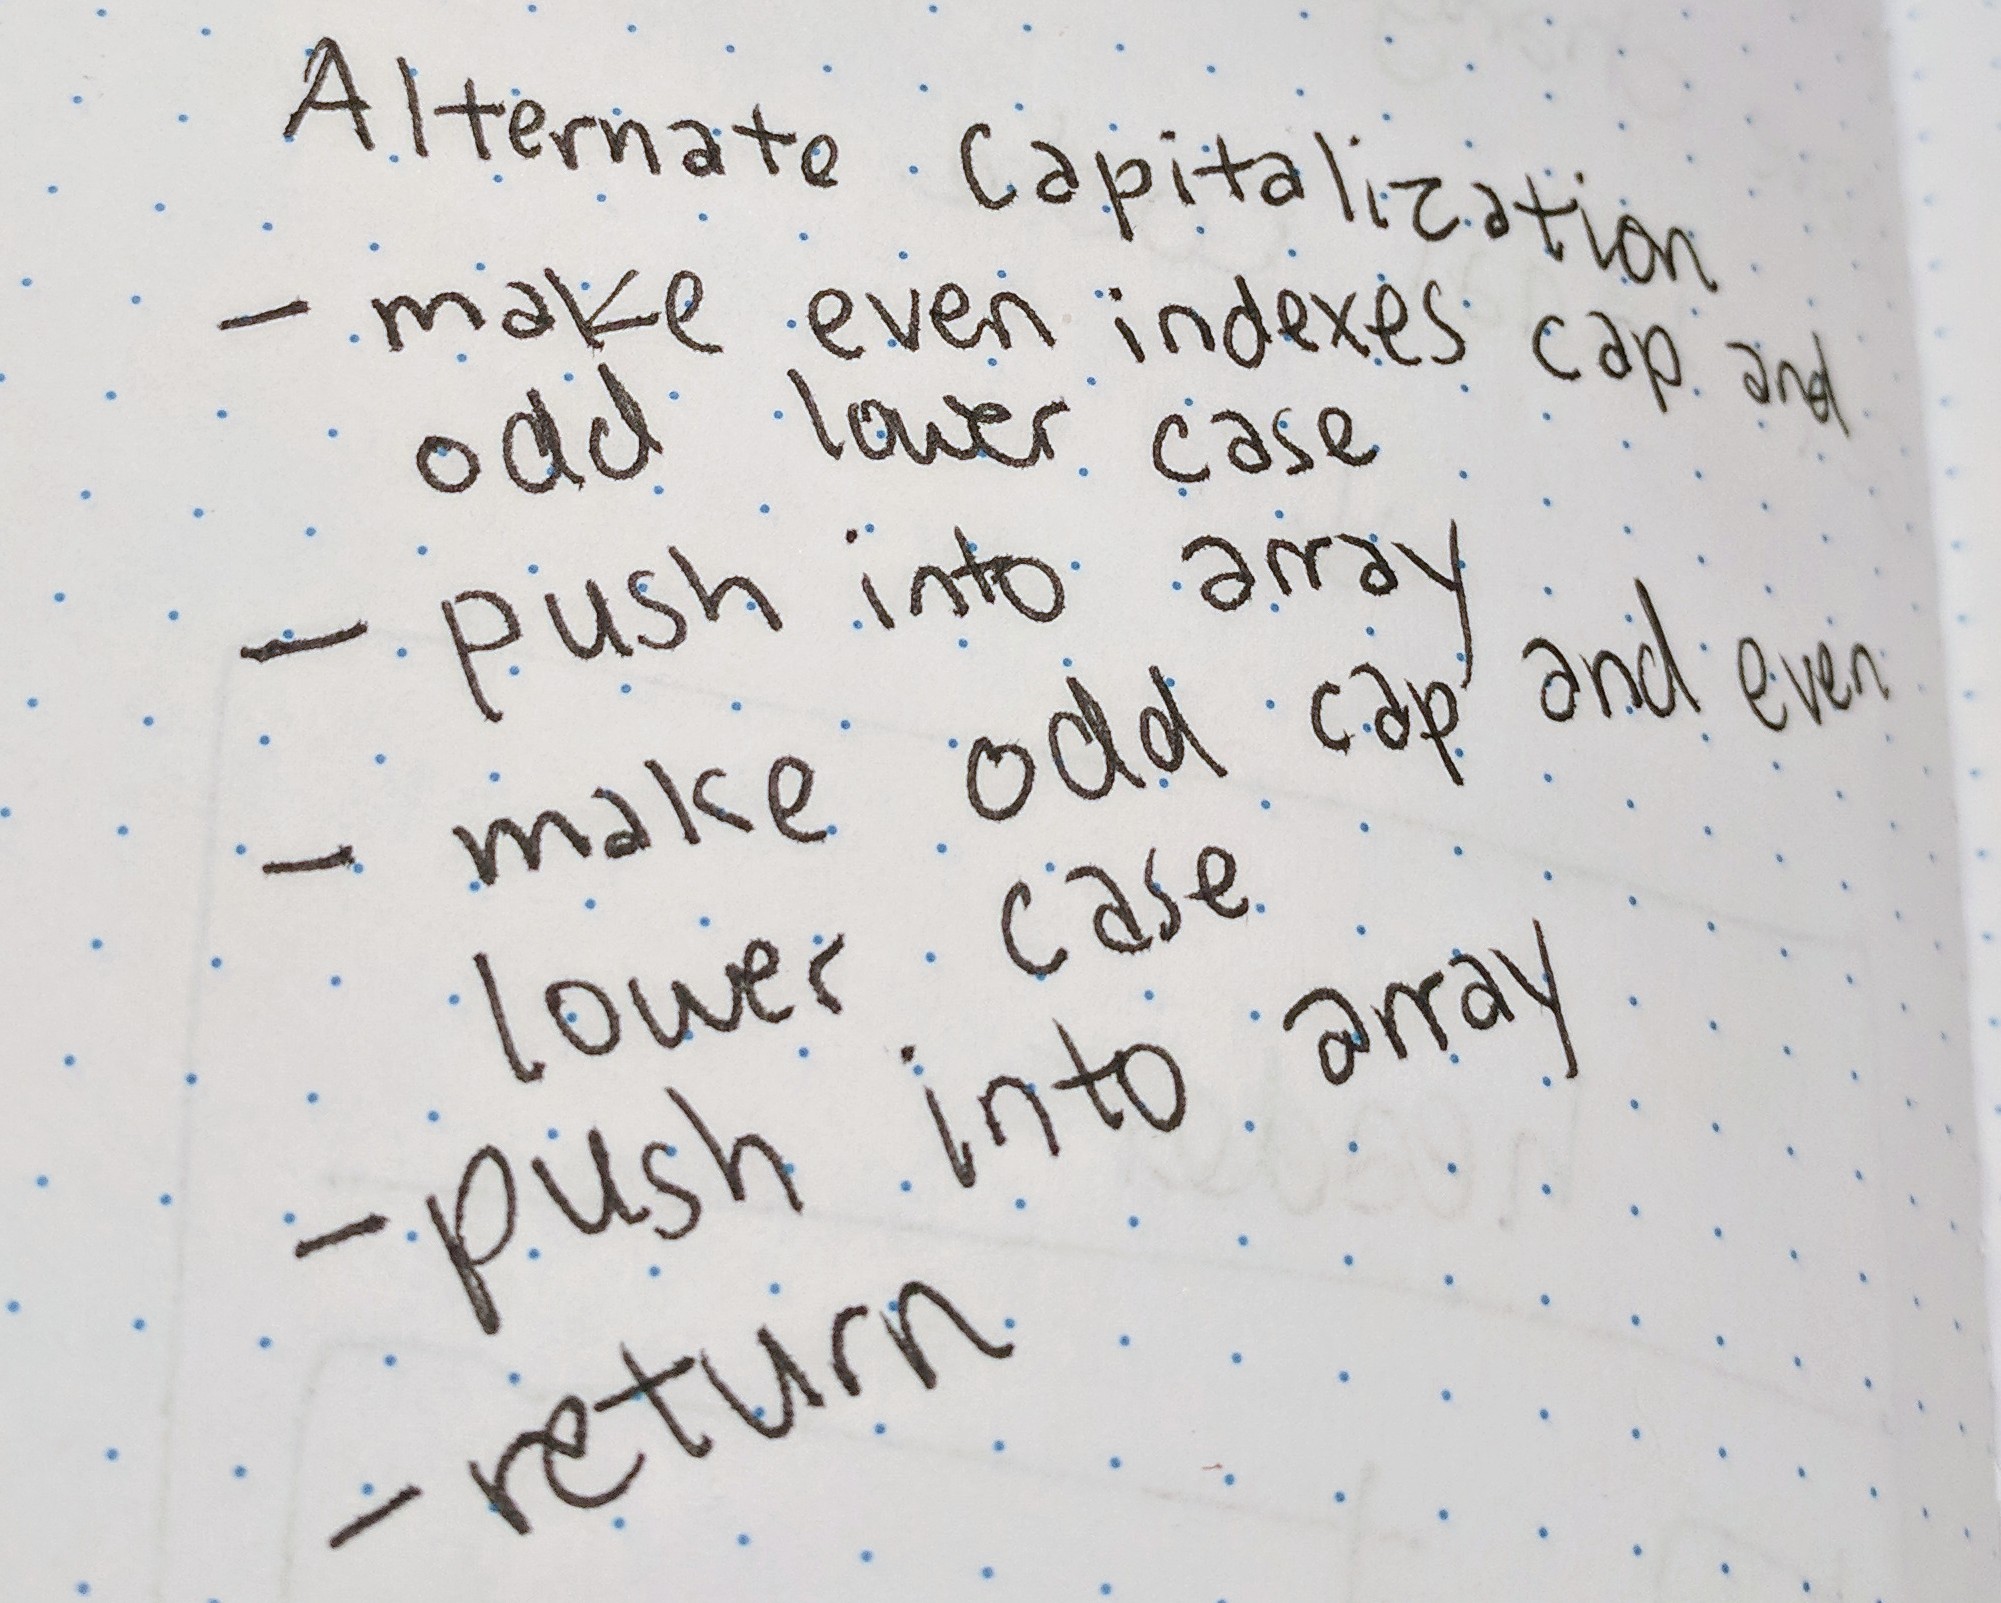 Alternate Capitalization
- make even indexes cap and
odd lower case
- push into array
- make odd cap and even
lower case
- push into array
- return